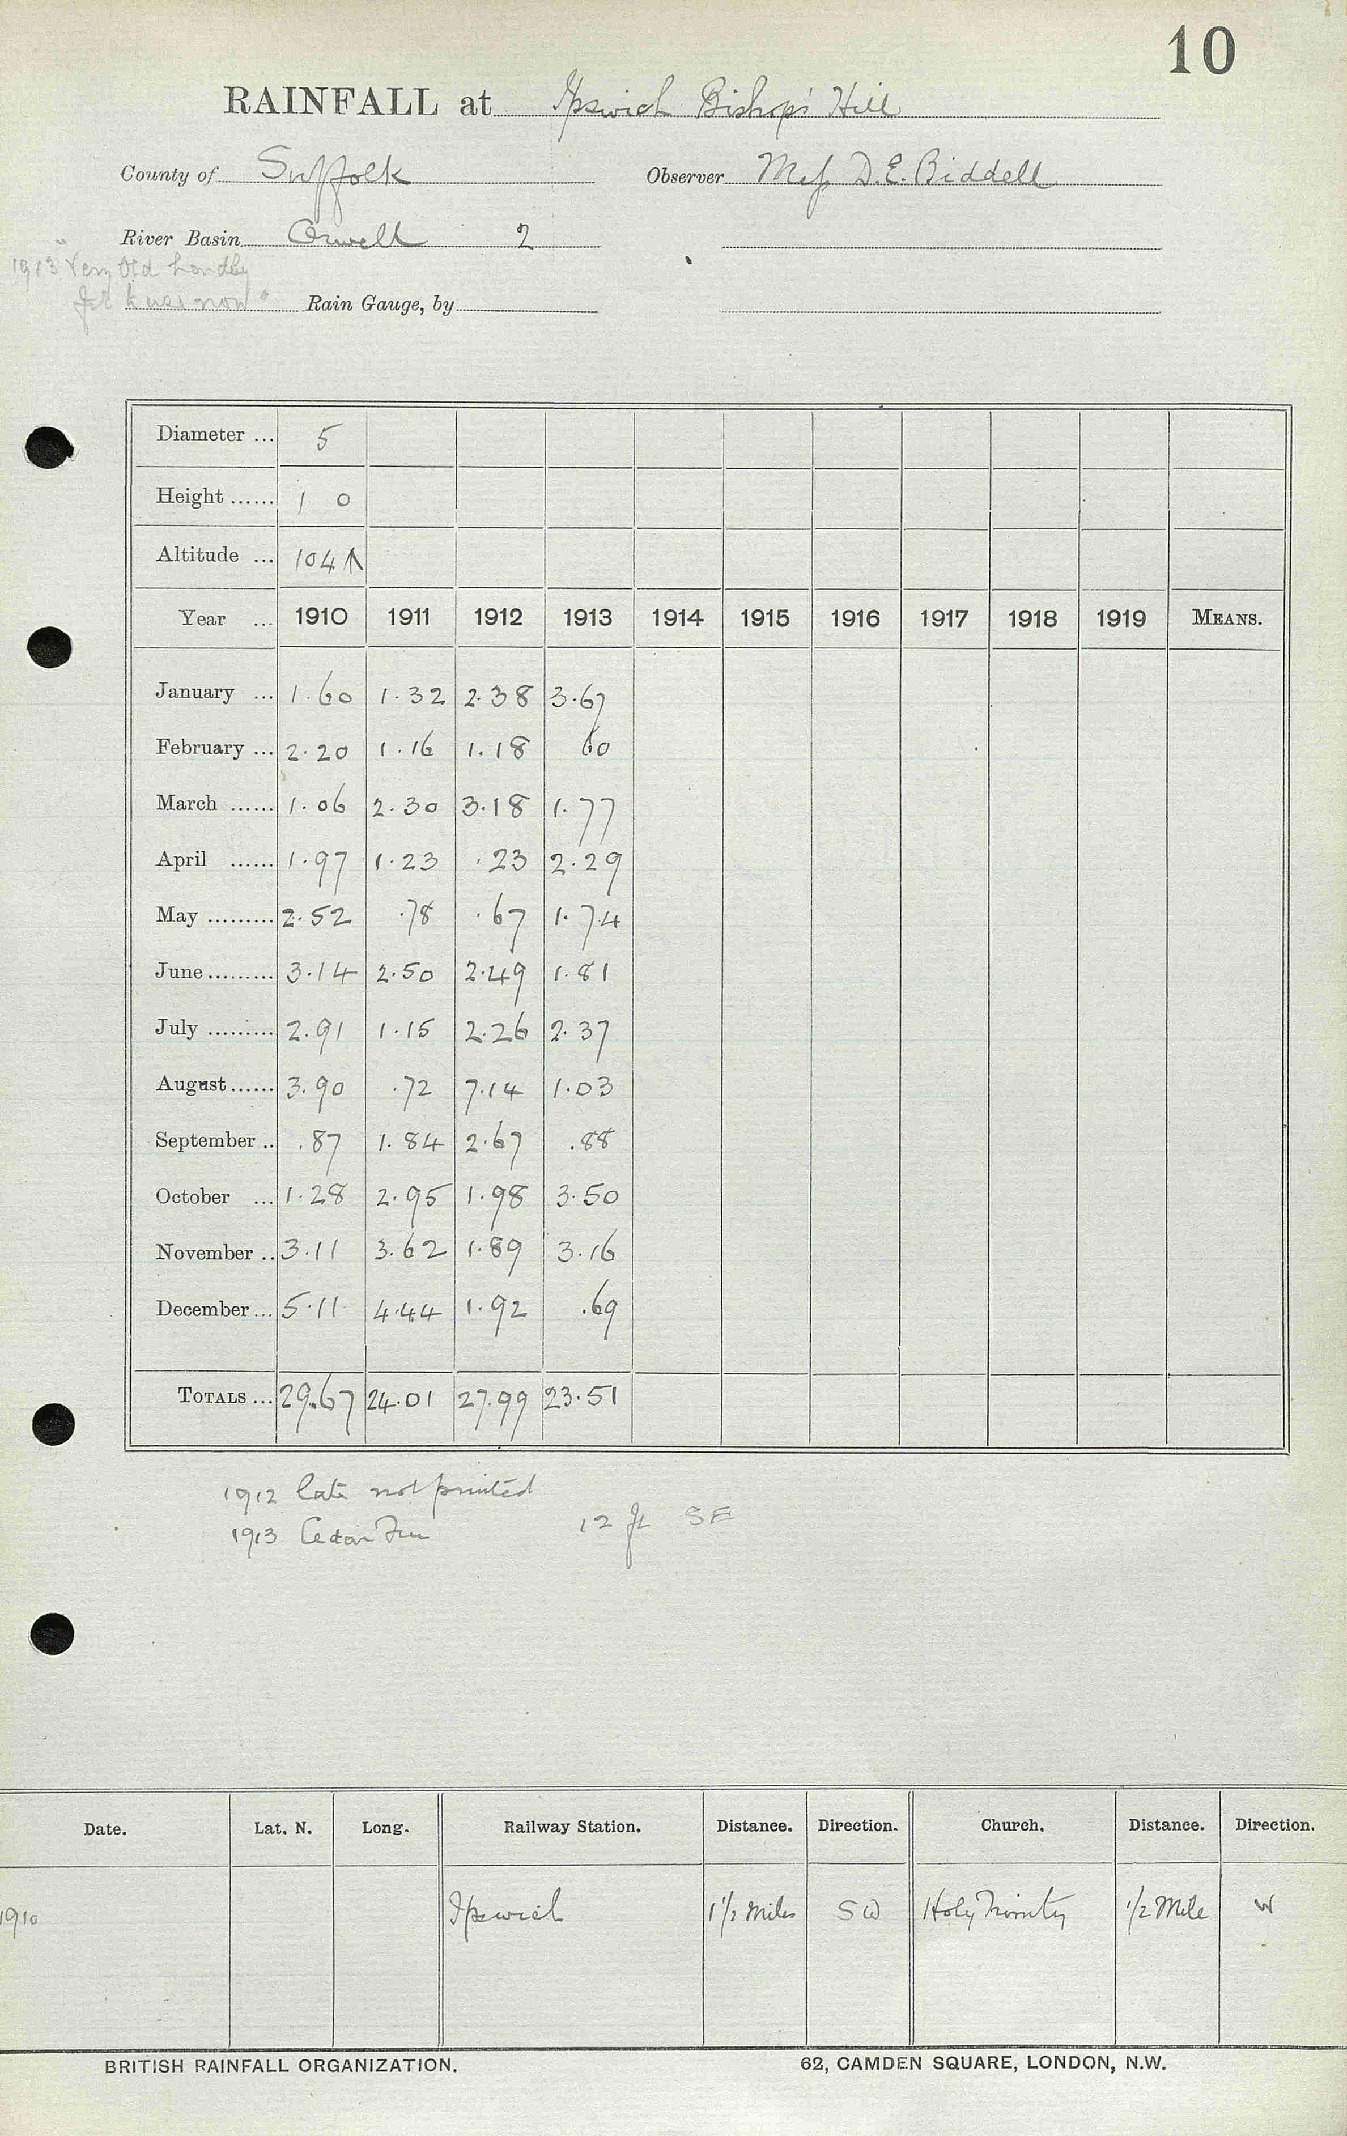 10
RAINFALL at Ipswich Bishops' Hill
County of Suffolk Observer D.E. Biddell
River Basin Orwell 2
1913 "Very Old
Rain Gauge, by
Diameter ... 5
Height ...... 1 0
Altitude ... 104 ↑
Year ... 1910 1911 1912 1913 1914 1915 1916 1917 1918 1919 MEANS.
January ... 1.60 1.32 2.38 3.67
February ... 2.20 1.16 1.18 60
March ...... 1.06 2.30 3.18 1.77
April ...... 1.97 1.23 .23 2.29
May ......... 2.52 .78 .67 1.74
June ......... 3.14 2.50 2.49 1.81
July ......... 2.91 1.15 2.26 2.37
August ...... 3.90 .72 7.14 1.03
September .. .87 1.84 2.67 .88
October ... 1.28 2.95 1.98 3.50
November .. 3.11 3.62 1.89 3.16
December ... 5.11 4.44 1.92 .69
TOTALS ... 29.67 24.01 27.99 23.51
1912 late not printed
1913 Cedar Tree 12 ft SE
Date. Lat. N. Long. Railway Station. Distance. Direction. Church. Distance. Direction.
1910 Ipswich 1 1/2 Miles SW Holy Trinity 1/2 Mile W
BRITISH RAINFALL ORGANIZATION. 62, CAMDEN SQUARE, LONDON, N.W.